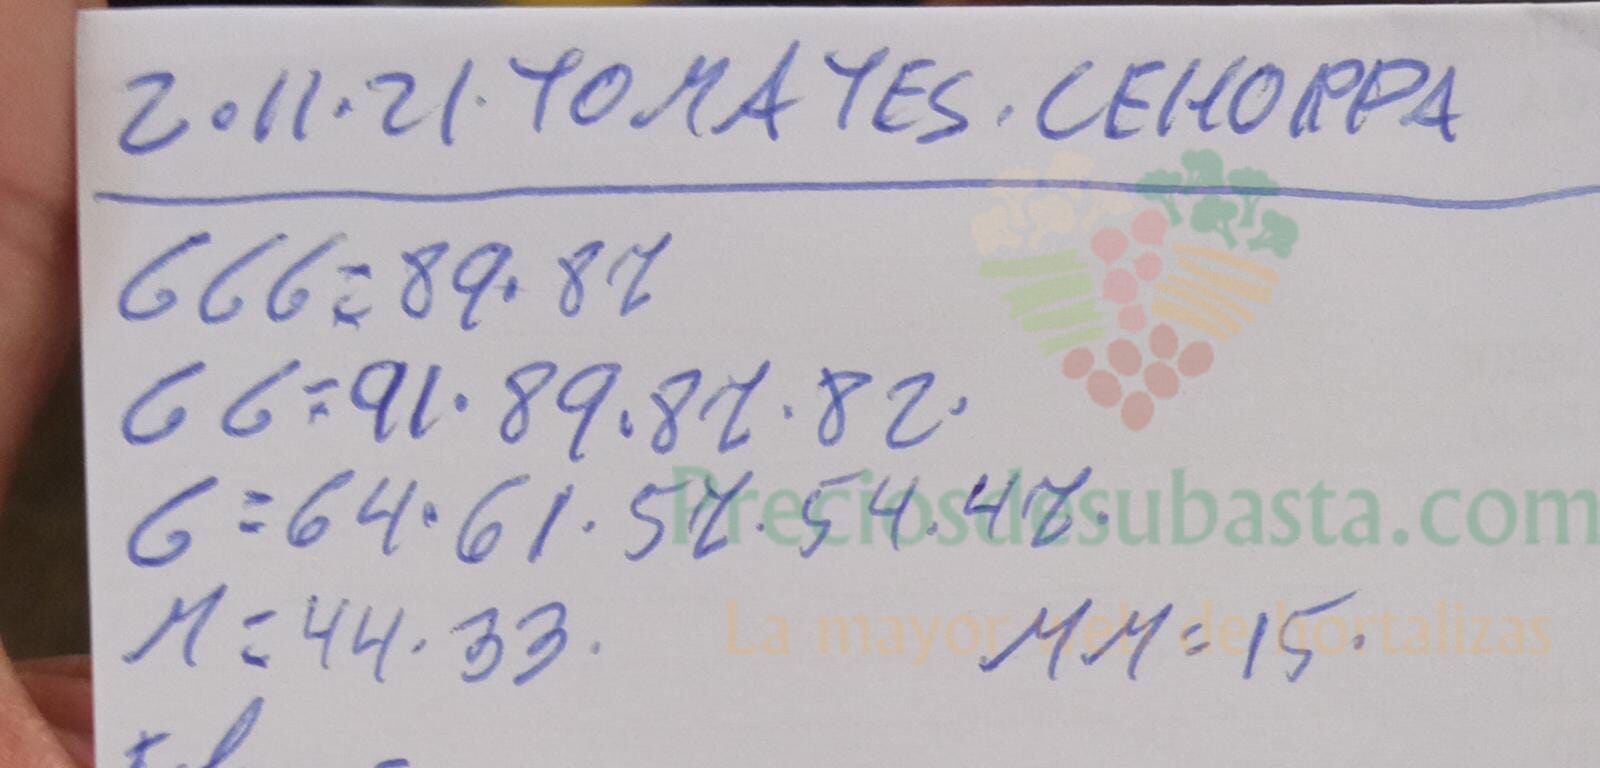 2.11.21. TOMATES. CEHORPA
GGG=89.87
GG=91.89.87.82.
G=64.61.57.54.47.
M=44.33. MM=15.
Preciosdesubasta.com
La mayor web de hortalizas